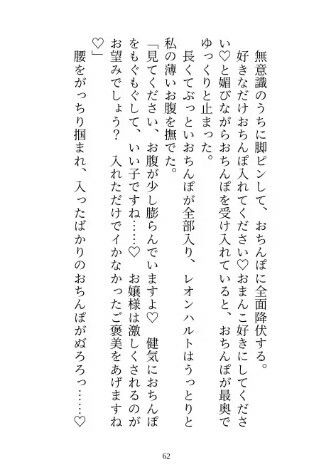 無意識のうちに脚ピンして、おちんぽに全面降伏する。
好きなだけおちんぽ入れてください♡おまんこ好きにしてくださ
い♡と媚びながらおちんぽを受け入れていると、おちんぽが最奥で
ゆっくりと止まった。
長くてぶっといおちんぽが全部入り、レオンハルトはうっとりと
私の薄いお腹を撫でた。
「見てください、お腹が少し膨らんでいますよ♡　健気におちんぽ
をもぐもぐして、いい子ですね……♡　お嬢様は激しくされるのが
お望みでしょう？　入れただけでイかなかったご褒美をあげますね
♡」
腰をがっちり掴まれ、入ったばかりのおちんぽがぬろろっ……♡
62